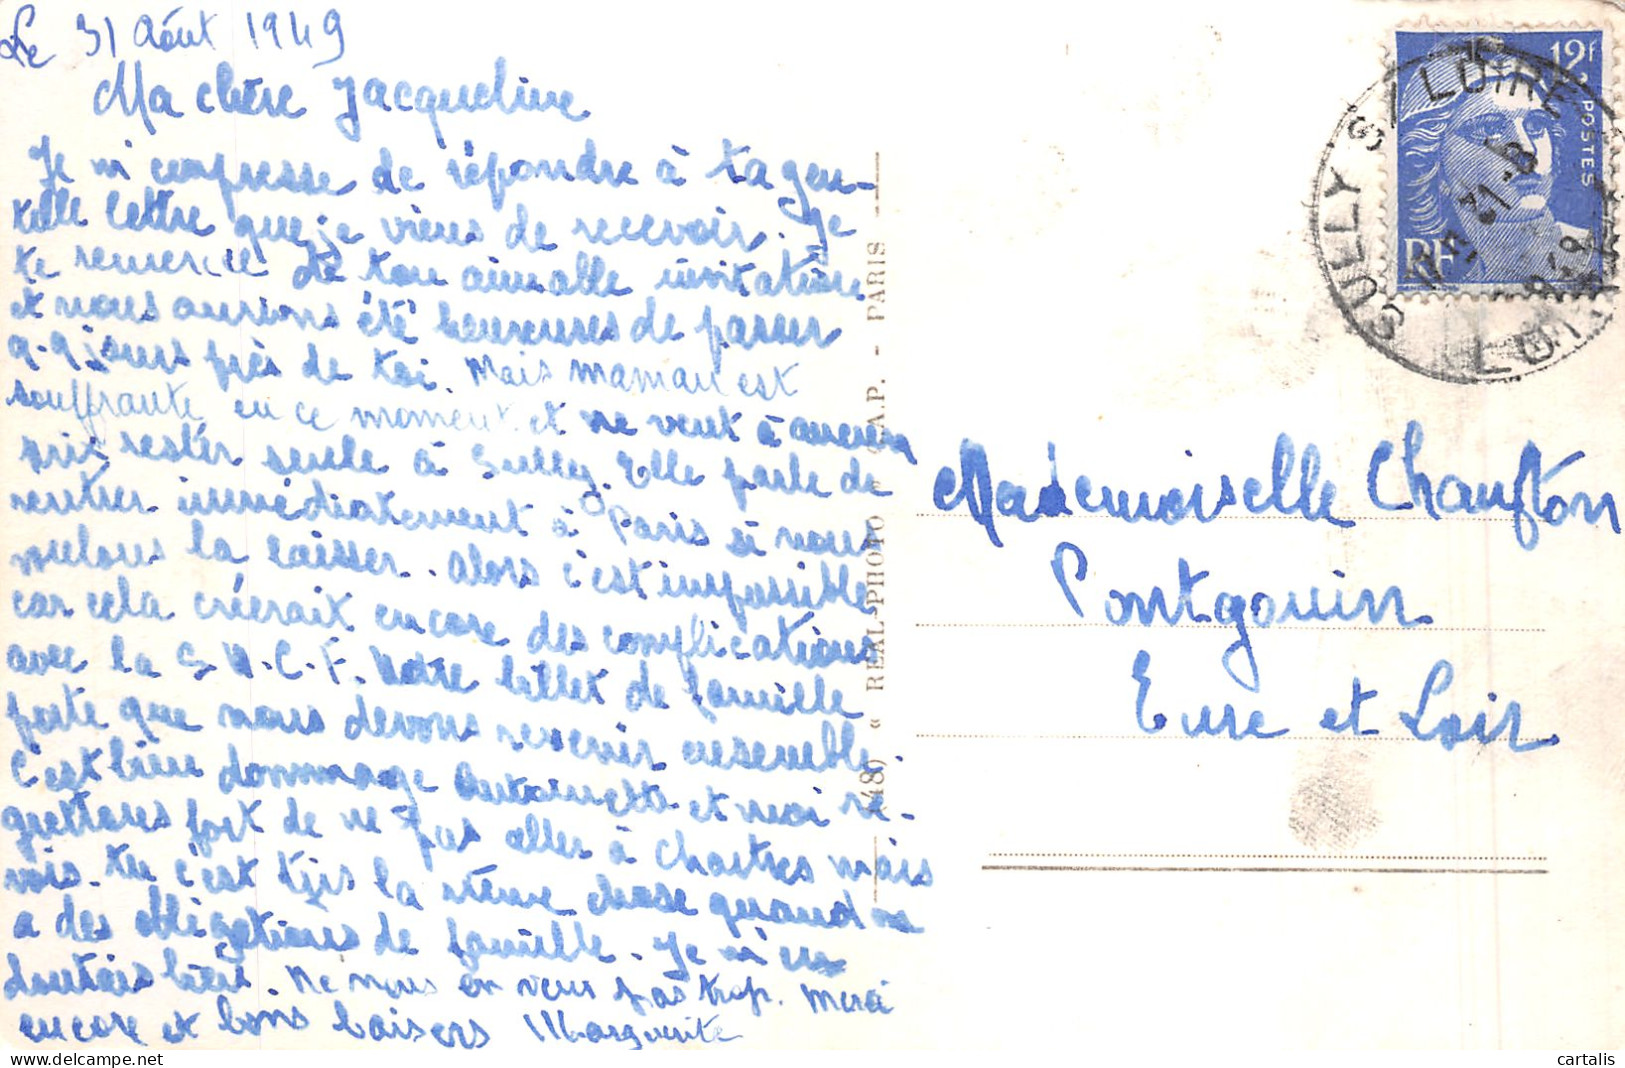 Le 31 Août 1949
Ma chère Jacqueline
Je m'empresse de répondre à ta gen-
tille lettre que je viens de recevoir. Je
te remercie de ton aimable invitation
et nous aurions été heureuses de passer
q-q jours près de toi. Mais maman est
souffrante en ce moment et ne veut à aucun
prix rester seule à Sully. Elle parle de
rentrer immédiatement à Paris si nous
voulons la laisser. Alors c'est impossible
car cela créerait encore des complications
avec la S.N.C.F. Notre billet de famille
porte que nous devons revenir ensemble.
C'est bien dommage Antoinette et moi re-
grettons fort de ne pas aller à Chartres mais
vois-tu c'est tjrs la même chose quand on
a des obligations de famille. Je m'en
doutais bien. Ne nous en veux pas trop. Merci
encore et bons baisers Marguerite
(48) « REAL-PHOTO » C.A.P. - PARIS
12F
POSTES
RF
SULLY S/ LOIRE
31-8
LOIRET
Mademoiselle Chaufton
Pontgouin
Eure et Loir
cartalis